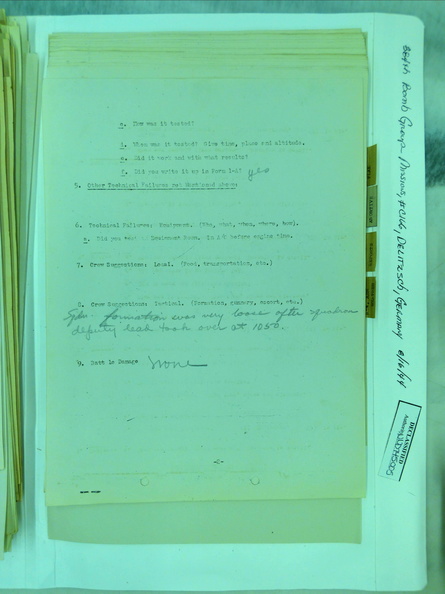 c. How was it tested?
d. When was it tested? Give time, place and altitude.
e. Did it work and with what results?
f. Did you write it up in Form 1-A? yes
5. Other Technical Failures not Mentioned above:
6. Technical Failures: Equipment. (Who, what, when, where, how).
a. Did you in A/C before engine time.
7. Crew Suggestions: Local. (Food, transportation, etc.)
8. Crew Suggestions: Tactical. (Formation, gunnery, escort, etc.)
formation was very loose after squadron
deputy lead took over at 1050.
9. Battle Damage none
384th Bomb Group Mission, DELITZSCH, GERMANY 8/16/44
DECLASSIFIED